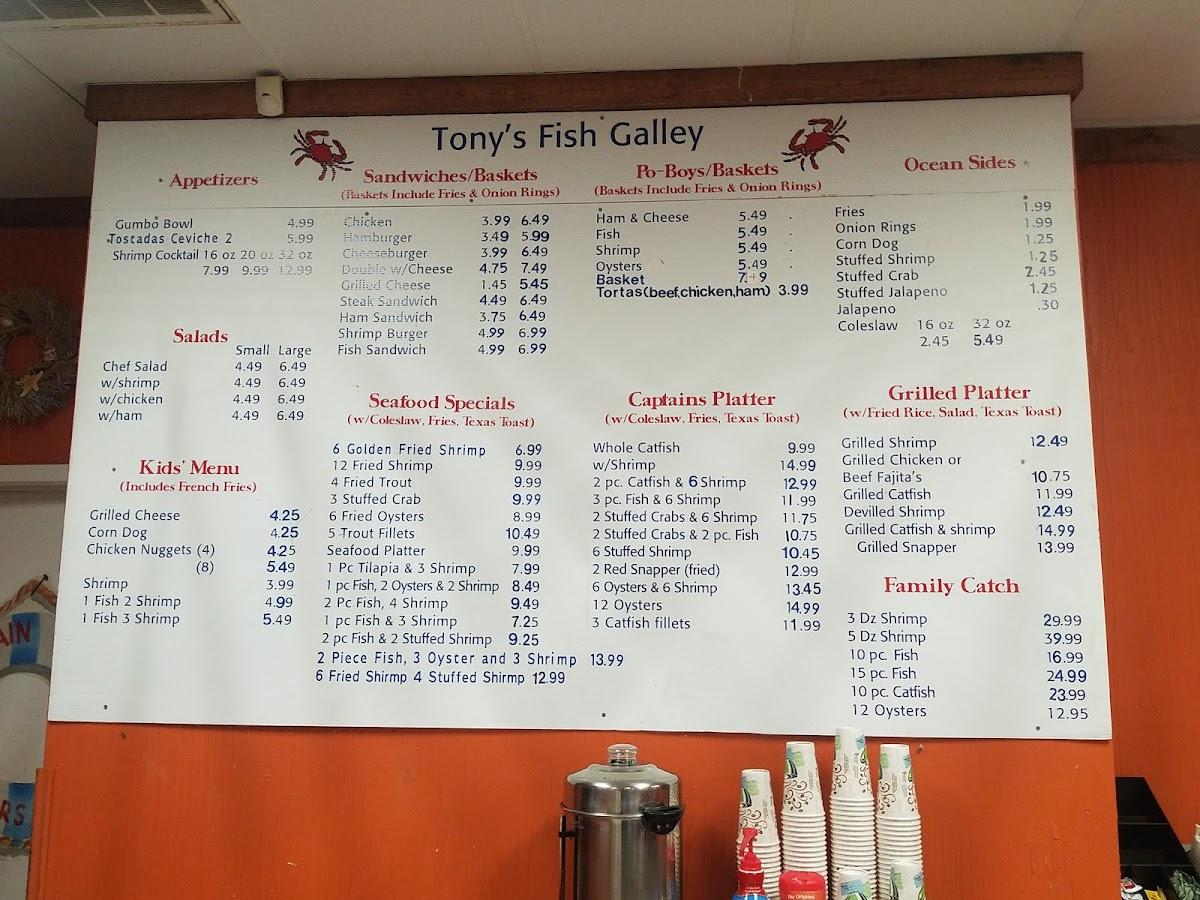 Tony's Fish Galley
Appetizers
Gumbo Bowl 4.99
Tostadas Ceviche 2 5.99
Shrimp Cocktail 16 oz 20 oz 32 oz
7.99 9.99 12.99
Salads
Small Large
Chef Salad 4.49 6.49
w/shrimp 4.49 6.49
w/chicken 4.49 6.49
w/ham 4.49 6.49
Kids' Menu
(Includes French Fries)
Grilled Cheese 4.25
Corn Dog 4.25
Chicken Nuggets (4) 4.25
(8) 5.49
Shrimp 3.99
1 Fish 2 Shrimp 4.99
1 Fish 3 Shrimp 5.49
Sandwiches/Baskets
(Baskets Include Fries & Onion Rings)
Chicken 3.99 6.49
Hamburger 3.49 5.99
Cheeseburger 3.99 6.49
Double w/Cheese 4.75 7.49
Grilled Cheese 1.45 5.45
Steak Sandwich 4.49 6.49
Ham Sandwich 3.75 6.49
Shrimp Burger 4.99 6.99
Fish Sandwich 4.99 6.99
Seafood Specials
(w/Coleslaw, Fries, Texas Toast)
6 Golden Fried Shrimp 6.99
12 Fried Shrimp 9.99
4 Fried Trout 9.99
3 Stuffed Crab 9.99
6 Fried Oysters 8.99
5 Trout Fillets 10.49
Seafood Platter 9.99
1 Pc Tilapia & 3 Shrimp 7.99
1 pc Fish, 2 Oysters & 2 Shrimp 8.49
2 Pc Fish, 4 Shrimp 9.49
1 pc Fish & 3 Shrimp 7.25
2 pc Fish & 2 Stuffed Shrimp 9.25
2 Piece Fish, 3 Oyster and 3 Shrimp 13.99
6 Fried Shirmp 4 Stuffed Shirmp 12.99
Po-Boys/Baskets
(Baskets Include Fries & Onion Rings)
Ham & Cheese 5.49
Fish 5.49
Shrimp 5.49
Oysters 5.49
Basket
Tortas(beef,chicken,ham) 3.99
Captains Platter
(w/Coleslaw, Fries, Texas Toast)
Whole Catfish 9.99
w/Shrimp 14.99
2 pc. Catfish & 6 Shrimp 12.99
3 pc. Fish & 6 Shrimp 11.99
2 Stuffed Crabs & 6 Shrimp 11.75
2 Stuffed Crabs & 2 pc. Fish 10.75
6 Stuffed Shrimp 10.45
2 Red Snapper (fried) 12.99
6 Oysters & 6 Shrimp 13.45
12 Oysters 14.99
3 Catfish fillets 11.99
Ocean Sides
Fries 1.99
Onion Rings 1.99
Corn Dog 1.25
Stuffed Shrimp 1.25
Stuffed Crab 2.45
Stuffed Jalapeno 1.25
Jalapeno .30
Coleslaw 16 oz 32 oz
2.45 5.49
Grilled Platter
(w/Fried Rice, Salad, Texas Toast)
Grilled Shrimp 12.49
Grilled Chicken or
Beef Fajita's 10.75
Grilled Catfish 11.99
Devilled Shrimp 12.49
Grilled Catfish & shrimp 14.99
Grilled Snapper 13.99
Family Catch
3 Dz Shrimp 29.99
5 Dz Shrimp 39.99
10 pc. Fish 16.99
15 pc. Fish 24.99
10 pc. Catfish 23.99
12 Oysters 12.95
AIN
RS